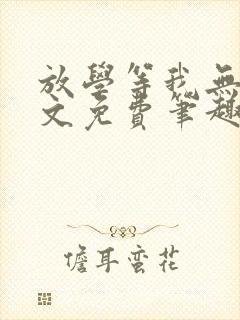 放學等我無
文免費筆趣
儋耳蛮花